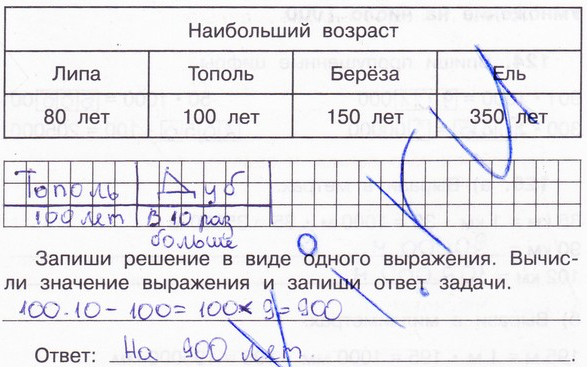 Наибольший возраст
Липа Тополь Берёза Ель
80 лет 100 лет 150 лет 350 лет
Тополь Дуб
100 лет В 10 раз
больше
Запиши решение в виде одного выражения. Вычис-
ли значение выражения и запиши ответ задачи.
100·10-100=100×9=900
Ответ: На 900 лет.